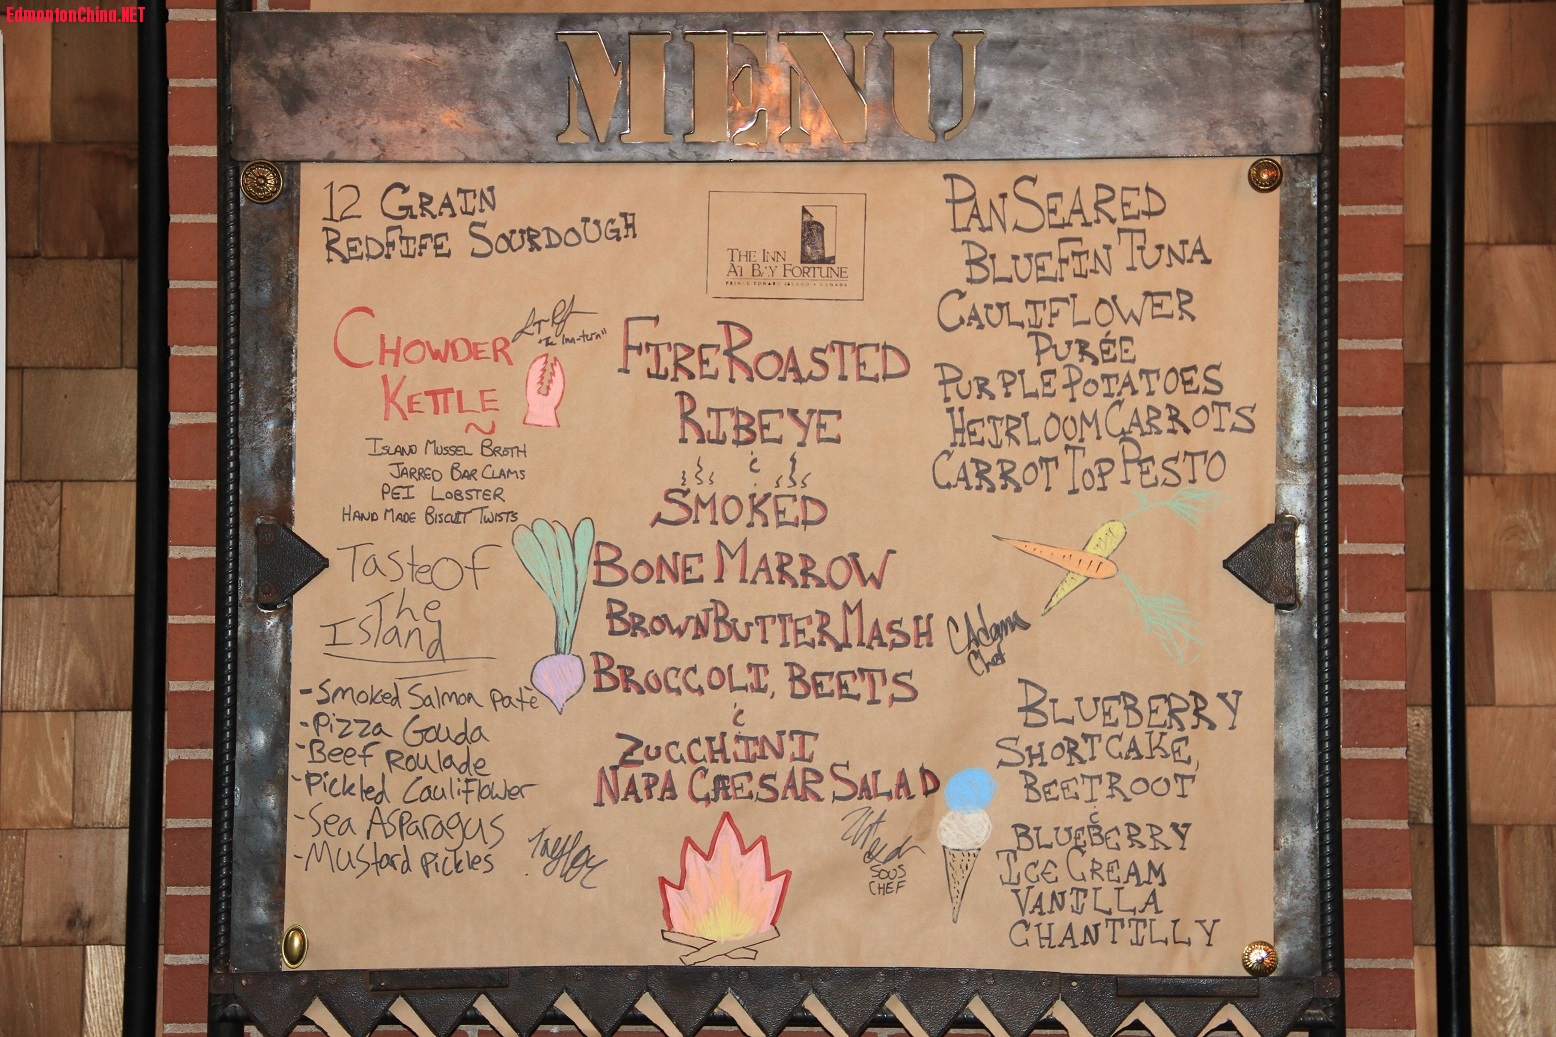 EdmontonChina.NET
MENU
12 GRAIN
REDFIFE SOURDOUGH
CHOWDER
KETTLE
~
"In Inn-turn"
ISLAND MUSSEL BROTH
JARRED BAR CLAMS
PEI LOBSTER
HAND MADE BISCUIT TWISTS
Taste Of
The
Island
- Smoked Salmon pate
- Pizza Gouda
- Beef Roulade
- Pickled Cauliflower
- Sea Asparagus
- Mustard pickles
Taylor
THE INN
AT BAY FORTUNE
PRINCE EDWARD ISLAND • CANADA
FIRE ROASTED
RIBEYE
&
SMOKED
BONE MARROW
BROWN BUTTER MASH
BROCCOLI, BEETS
&
ZUCCHINI
NAPA CAESAR SALAD
SOUS
CHEF
PAN SEARED
BLUEFIN TUNA
CAULIFLOWER
PURÉE
PURPLE POTATOES
HEIRLOOM CARROTS
CARROT TOP PESTO
C Adams
Chef
BLUEBERRY
SHORTCAKE,
BEETROOT
&
BLUEBERRY
ICE CREAM
VANILLA
CHANTILLY